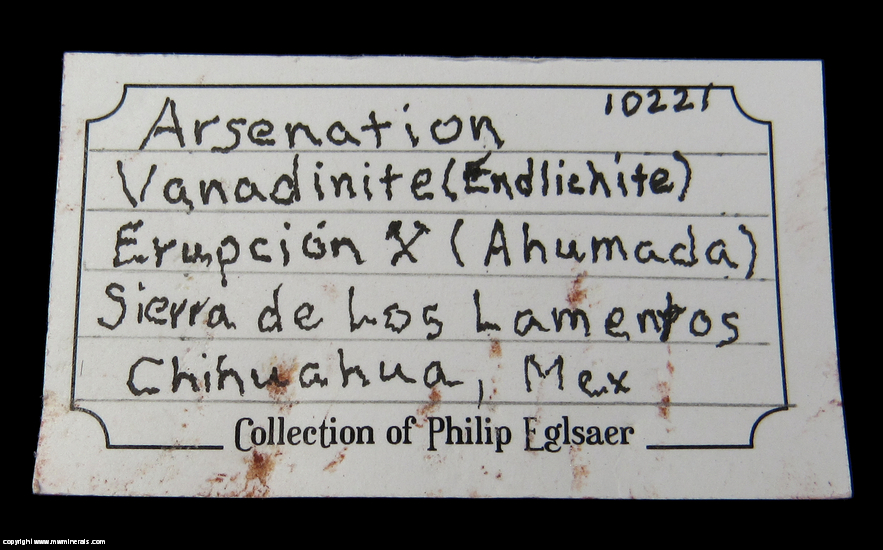 10221
Arsenation
Vanadinite (Endlichite)
Erupción X (Ahumada)
Sierra de Los Lamentos
Chihuahua, Mex
Collection of Philip Eglsaer
copyright www.mwminerals.com